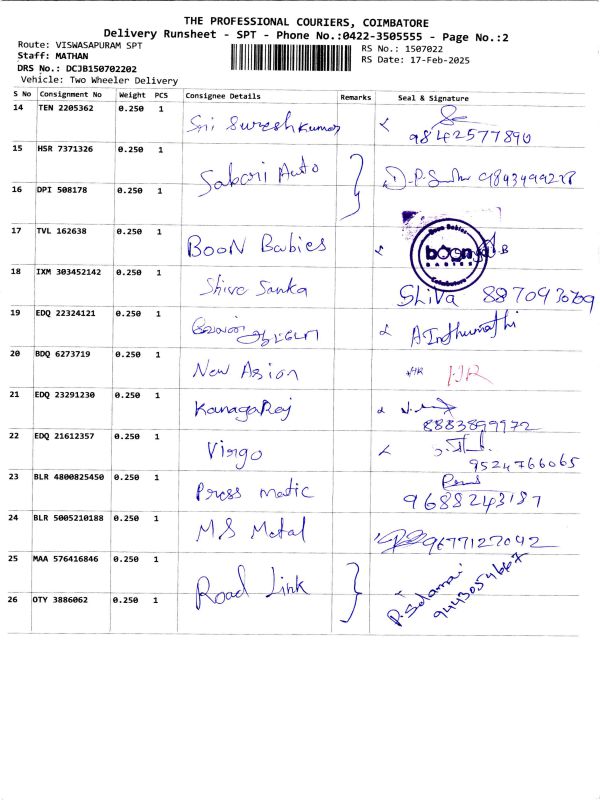 THE PROFESSIONAL COURIERS, COIMBATORE
Delivery Runsheet - SPT - Phone No.:0422-3505555 - Page No.:2
Route: VISWASAPURAM SPT
RS No.: 1507022
Staff: MATHAN
RS Date: 17-Feb-2025
DRS No.: DCJB150702202
Vehicle: Two Wheeler Delivery
S No Consignment No Weight PCS Consignee Details Remarks Seal & Signature
14 TEN 2205362 0.250 1 Sri Sureshkumar 9842577890
15 HSR 7371326 0.250 1 Sabari Auto
16 DPI 508178 0.250 1
17 TVL 162638 0.250 1 BooN Babies Boon Babies boon BABIES Coimbatore
18 IXM 303452142 0.250 1 Shiva Sanka Shiva
19 EDQ 22324121 0.250 1 A Inthumathi
20 BDQ 6273719 0.250 1 New Asion
21 EDQ 23291230 0.250 1 KanagaRaj 8883899972
22 EDQ 21612357 0.250 1 Virgo 9524766065
23 BLR 4800825450 0.250 1 Press matic 9688243187
24 BLR 5005210188 0.250 1 MS Metal 9677127042
25 MAA 576416846 0.250 1 Road Link
26 OTY 3886062 0.250 1